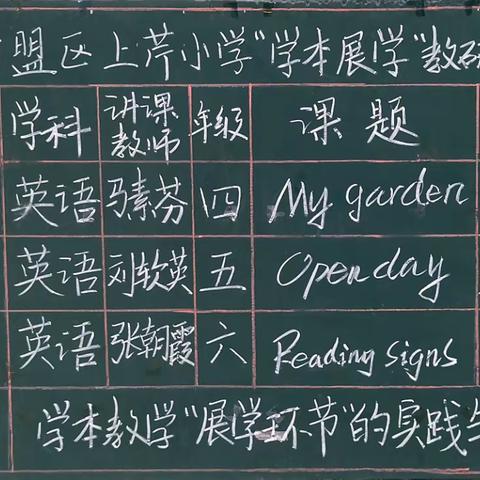 盟区上芹小学“学本展学”教研
学科 讲课教师 年级 课题
英语 骆素芬 四 My garden
英语 刘软英 五 Open day
英语 张朝霞 六 Reading signs
学本教学“展学环节”的实践